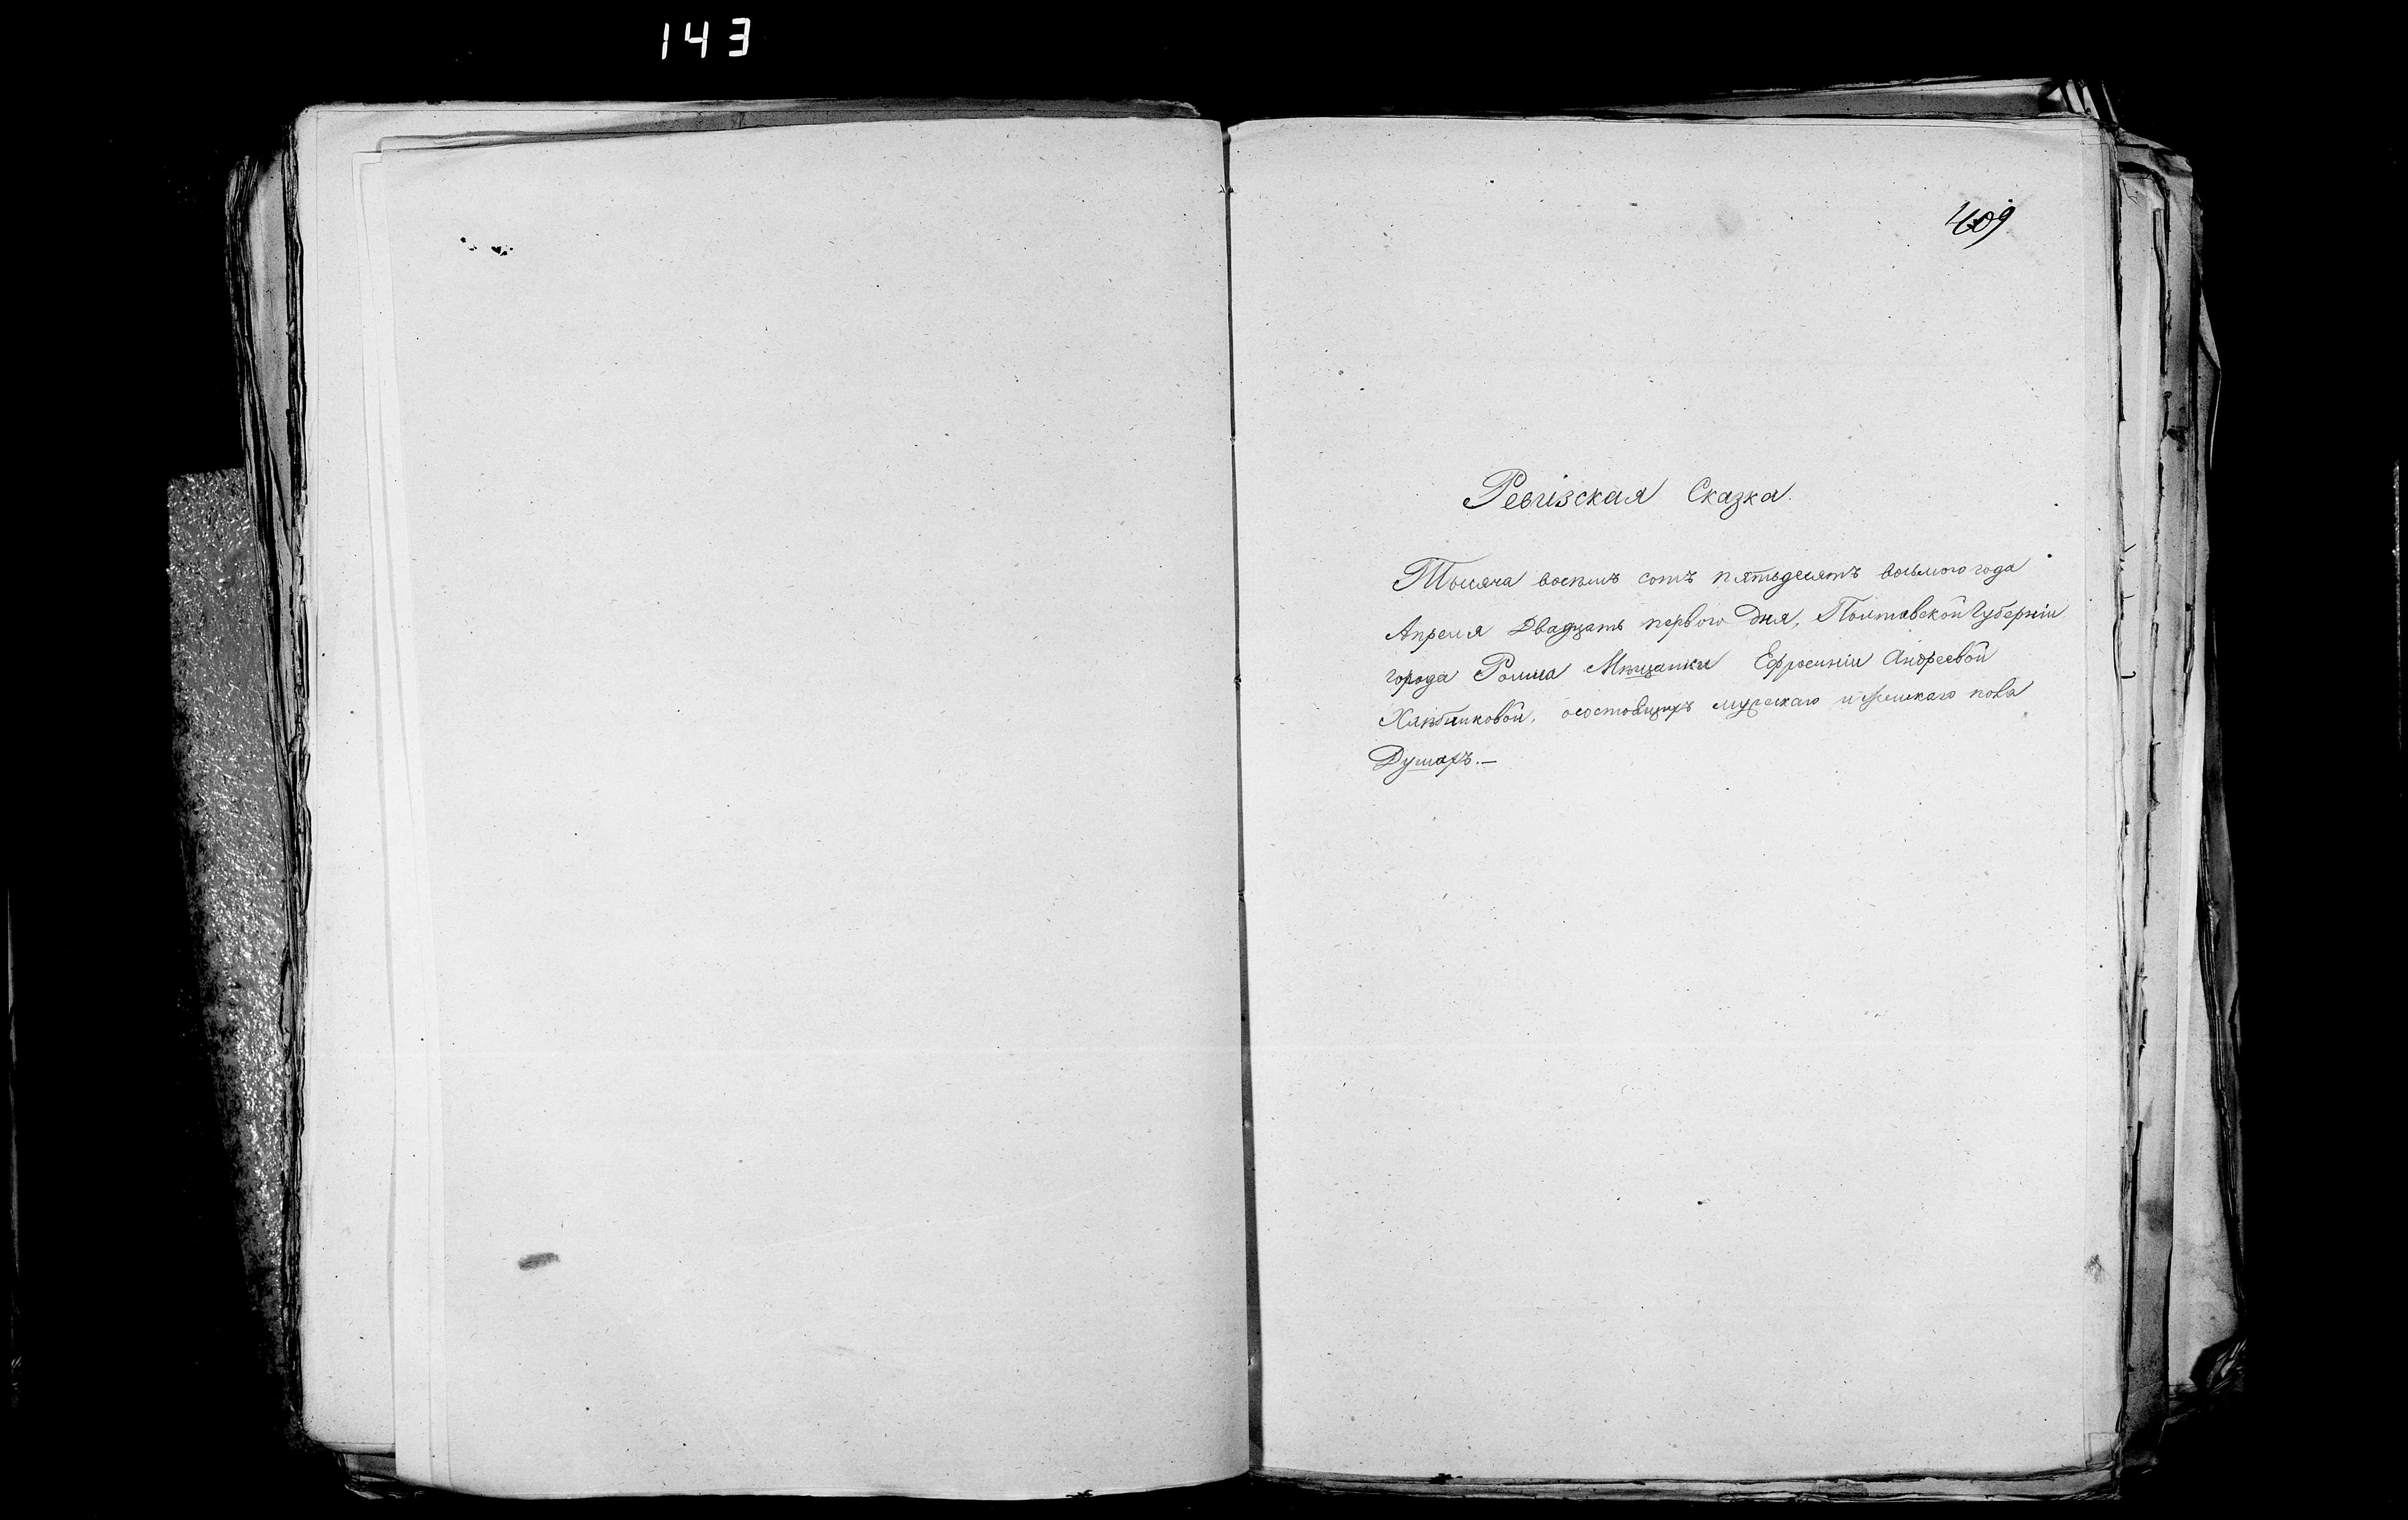 143
409
Ревизская Сказка.
Тысяча восемь сотъ пятьдесятъ восьмого года
Апреля Двадцать первого Дня, Полтавской Губерніи
города Ромна Мѣщанки Ефросиніи Андреевой
Хлѣбниковой, осостоящихъ мужескаго и женскаго пола
Душахъ.—